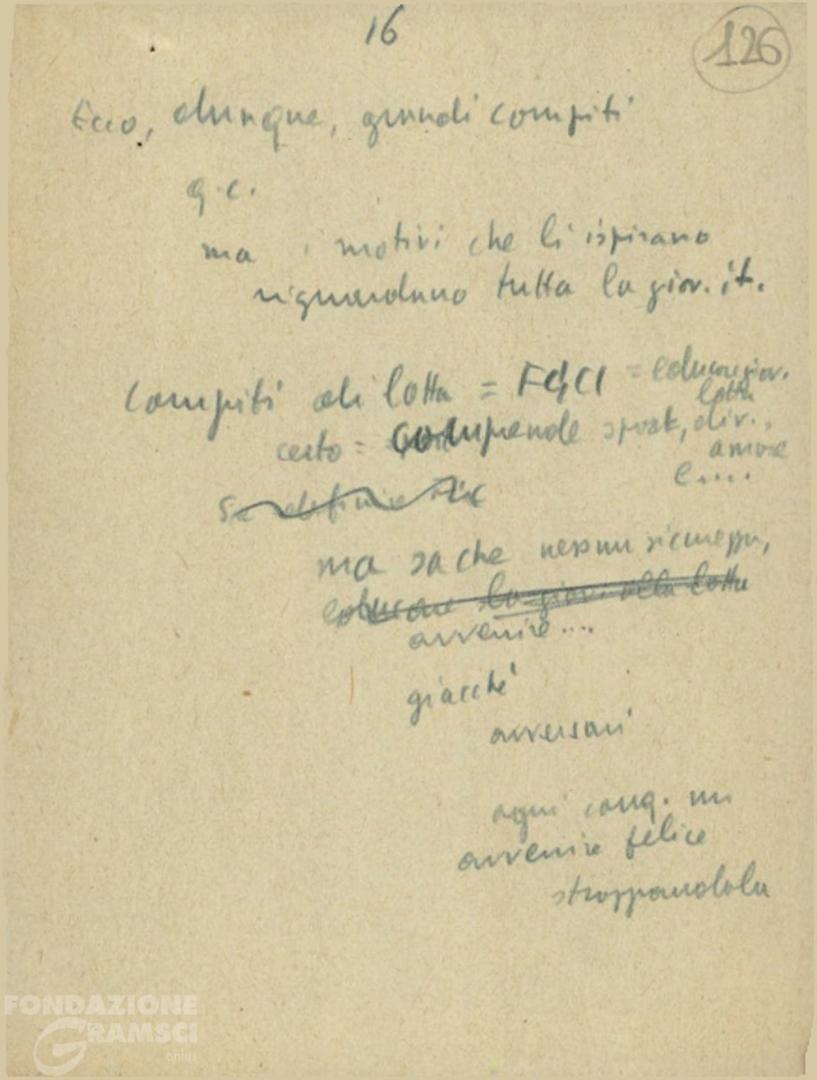 16
126
Ecco, dunque, grandi compiti
g.c.
ma i motivi che li ispirano
riguardano tutta la gior. it.
Compiti di lotta = FGCI = educaz gior.
lotta
certo = comprende sport, div.,
amore
e....
Se definire
ma sa che nessun
educare la giov. alla lotta
avvenire ...
giacché
avversari
ogni conq. un
avvenire felice
strappandola
FONDAZIONE
GRAMSCI
onlus